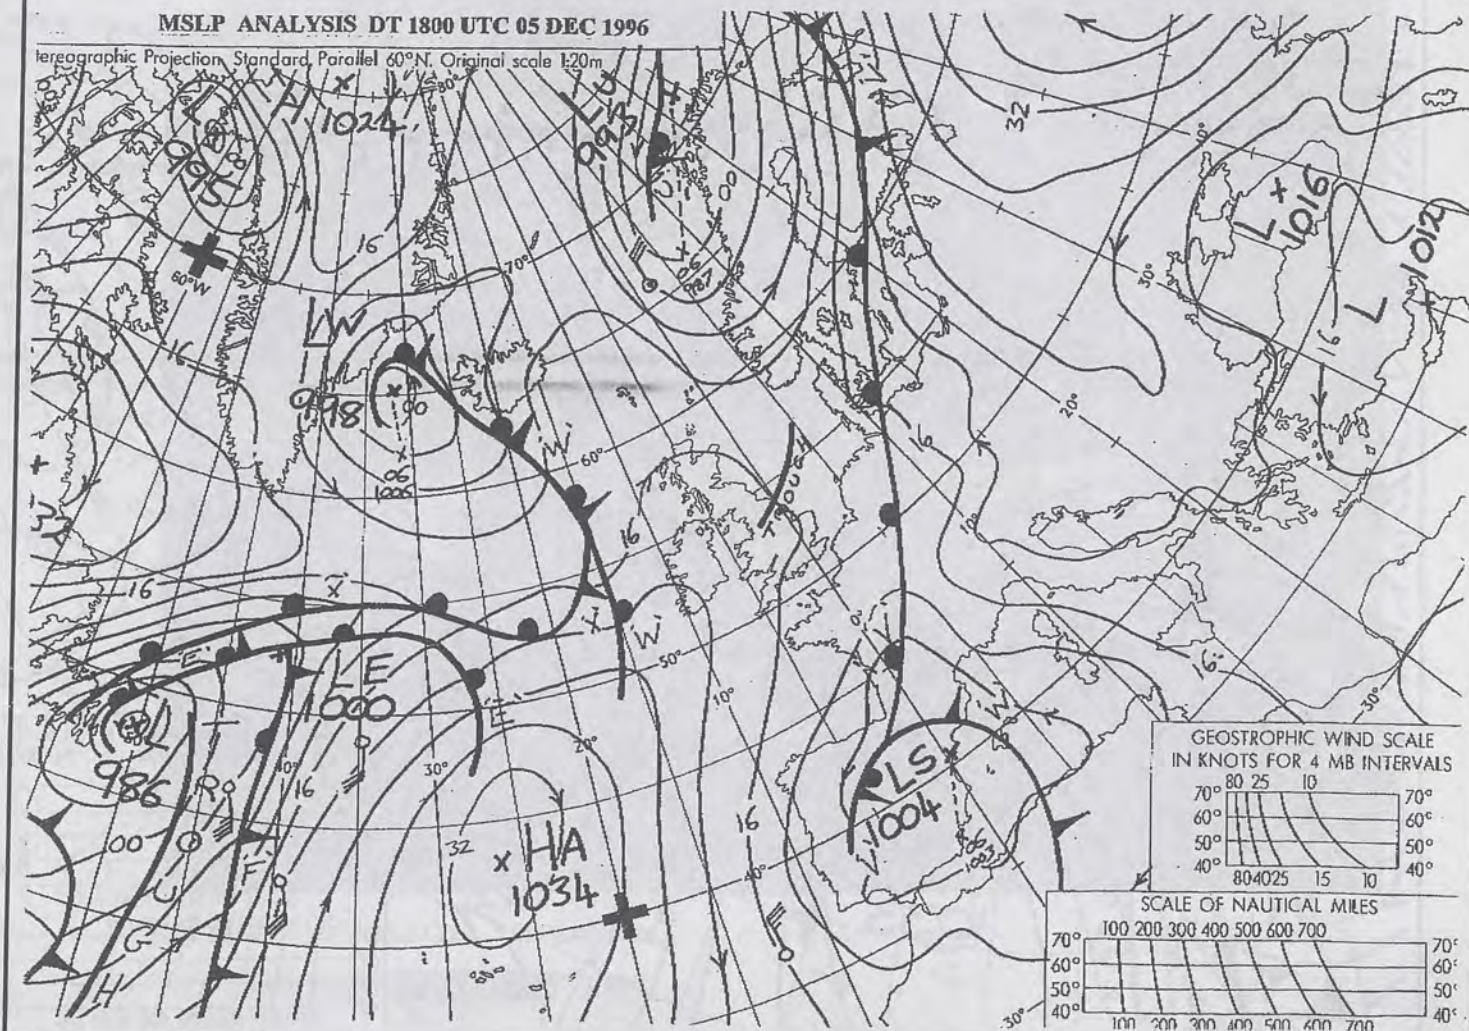 MSLP ANALYSIS DT 1800 UTC 05 DEC 1996
tereographic Projection, Standard Parallel 60°N. Original scale 1:20m
H
1024
L
995
LU
993
80°
70°
60°W
16
16
LW
998
06
1006
06
987
60°
'W'
32
L
1016
L
1012
16
30°
20°
10°
16
16
X
X
W
50°
E
E
LE
1000
L
986
00
40°
30°
20°
10°
0°
16
R
F
U
G
H
32
HA
1034
16
40°
LS
1004
06
1003
W
30°
30°
GEOSTROPHIC WIND SCALE
IN KNOTS FOR 4 MB INTERVALS
80 25 10
70° 70°
60° 60°
50° 50°
40° 40°
80 40 25 15 10
SCALE OF NAUTICAL MILES
100 200 300 400 500 600 700
70° 70°
60° 60°
50° 50°
40° 40°
100 200 300 400 500 600 700